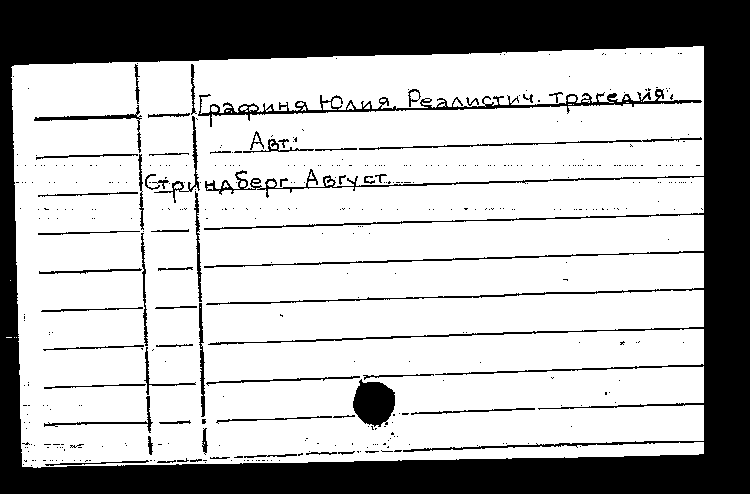 Графиня Юлия. Реалистич. трагедия.
Авт.:
Стриндберг, Август.